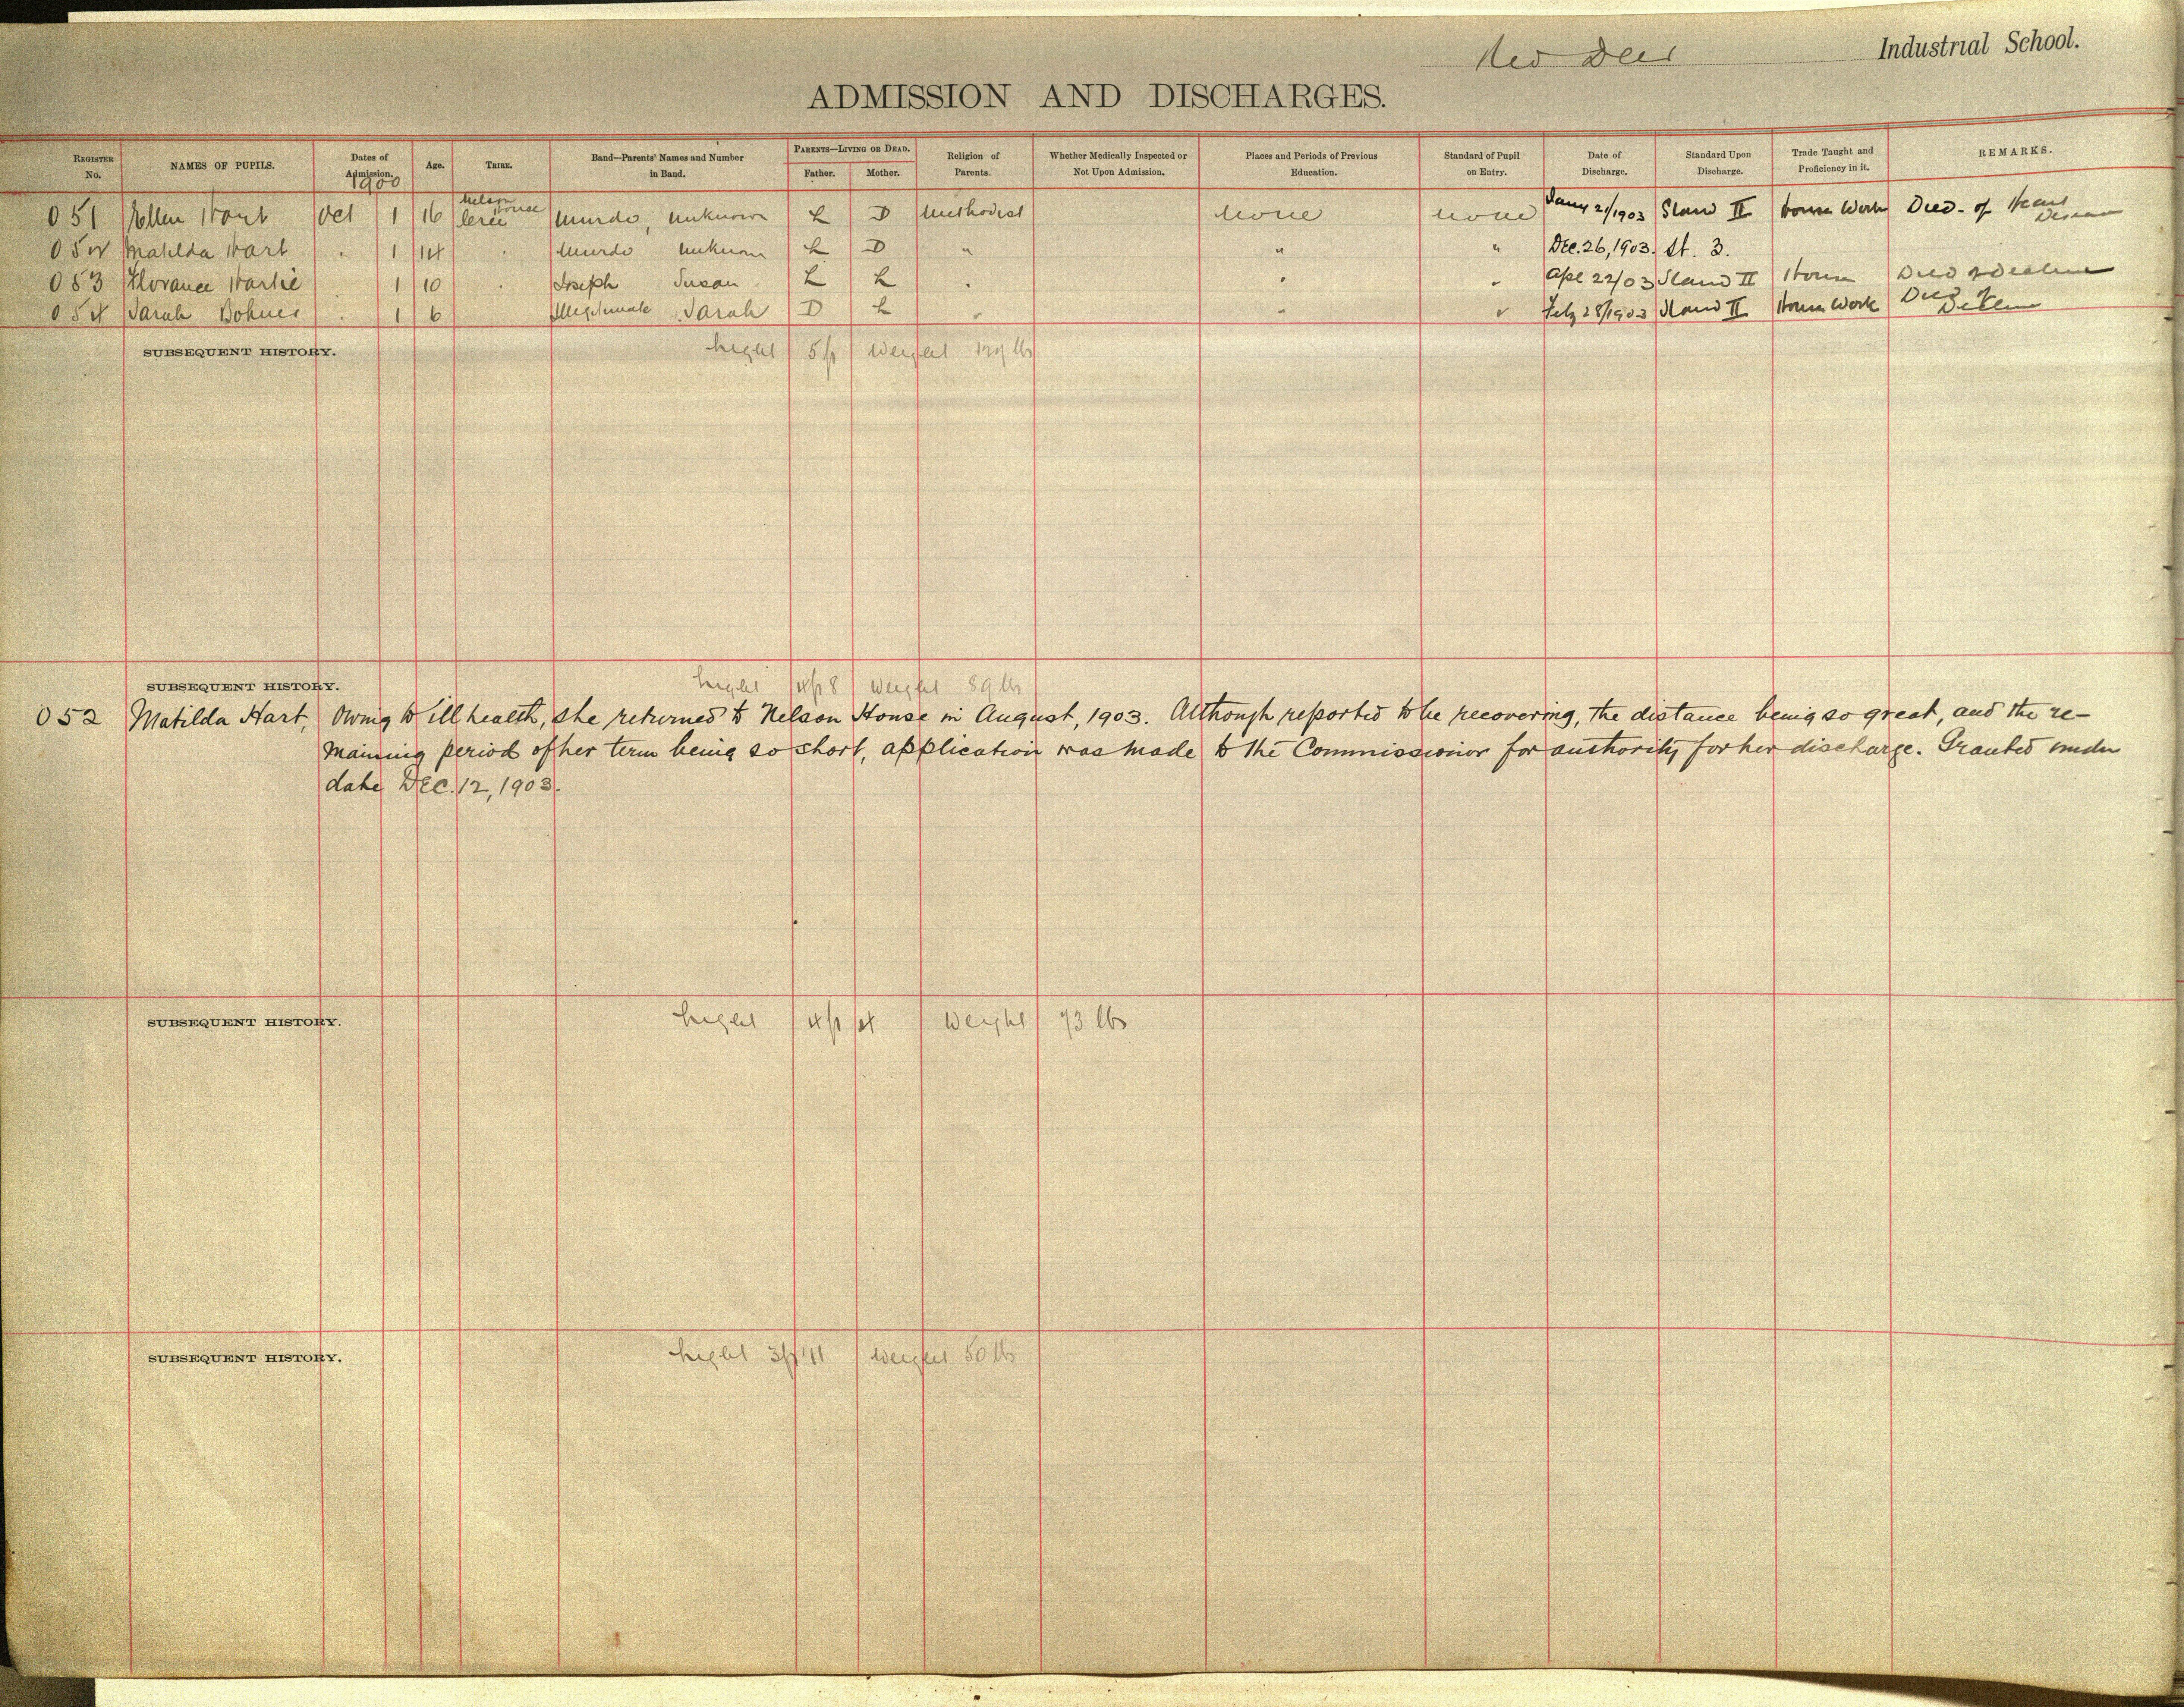 Red Deer Industrial School.
ADMISSION AND DISCHARGES.
REGISTER No. NAMES OF PUPILS. Dates of Admission. Age. TRIBE. Band—Parents' Names and Number in Band. PARENTS—LIVING OR DEAD. Father. Mother. Religion of Parents. Whether Medically Inspected or Not Upon Admission. Places and Periods of Previous Education. Standard of Pupil on Entry. Date of Discharge. Standard Upon Discharge. Trade Taught and Proficiency in it. REMARKS.
1900
051 Ellen Hart Oct 1 16 Nelson House Cree Murdo, unknown L D Methodist none none Jany 21/1903 Stand II House Work Died of Heart Disease
052 Matilda Hart " 1 14 " Murdo unknown L D " " " Dec. 26, 1903. St. 3.
053 Florance Hartie 1 10 " Joseph Susan L L " " " Apl 22/03 Stand II House Died of Decline
054 Sarah 1 6 Illegitimate Sarah D L " " " Feby 28/1903 Stand II House Work Died of Decline
SUBSEQUENT HISTORY. height 5ft weight lbs
SUBSEQUENT HISTORY. height 4ft 8 weight 89 lbs
052 Matilda Hart, Owing to ill health, she returned to Nelson House in August, 1903. Although reported to be recovering, the distance being so great, and the re-
maining period of her term being so short, application was made to the Commissioner for authority for her discharge. Granted under
date Dec. 12, 1903.
SUBSEQUENT HISTORY. height 4ft 4 weight 73 lbs
SUBSEQUENT HISTORY. height 3ft 11 weight 50 lbs